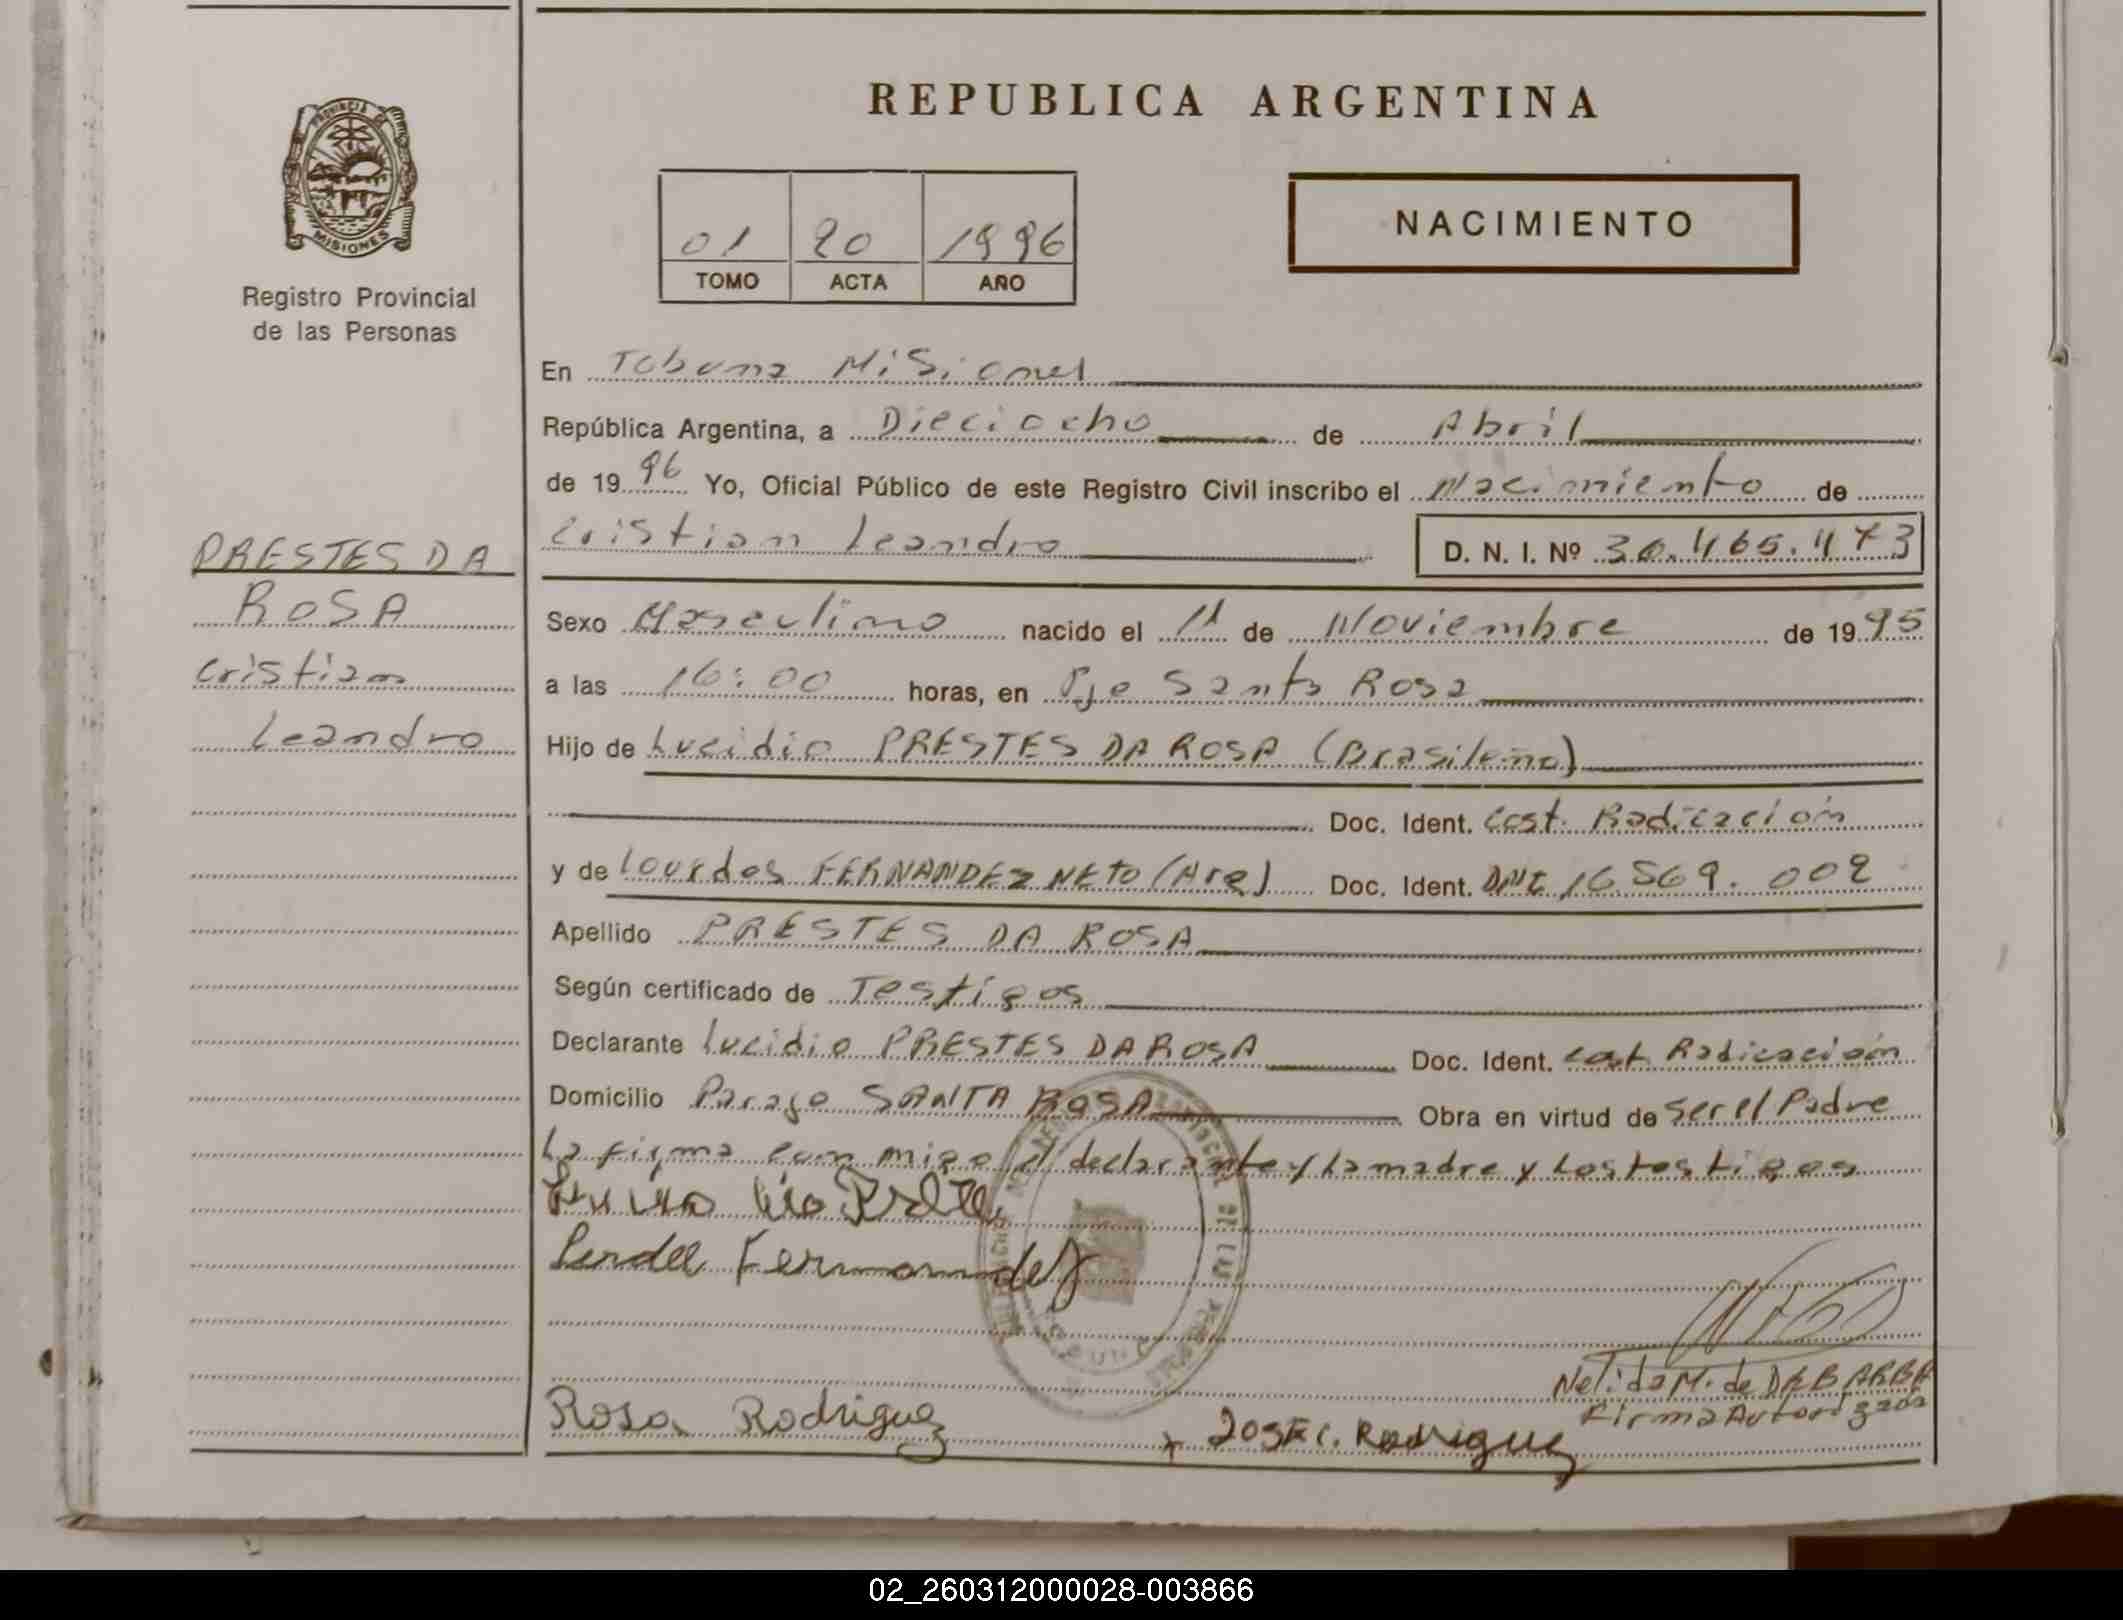 REPUBLICA ARGENTINA
PROVINCIA DE
MISIONES
Registro Provincial
de las Personas
01 20 1996
TOMO ACTA AÑO
NACIMIENTO
En Tobuna Misiones
República Argentina, a Dieciocho de Abril
de 1996 Yo, Oficial Público de este Registro Civil inscribo el Nacimiento de
Cristian Leandro D. N. I. Nº
PRESTES DA
ROSA
Cristian
Leandro
Sexo Masculino nacido el 11 de Noviembre de 1995
a las 16:00 horas, en Pje Santa Rosa
Hijo de Lucidio PRESTES DA ROSA (Brasileño)
Doc. Ident. Cost. Radicación
y de Lourdes FERNANDEZ NETO (Arg) Doc. Ident. DNI 16.569.002
Apellido PRESTES DA ROSA
Según certificado de Testigos
Declarante Lucidio PRESTES DA ROSA Doc. Ident. Cost. Radicación
Domicilio Paraje SANTA ROSA Obra en virtud de ser el Padre
La firma con migo el declarante y La madre y Los testigos
Fernandez
Nelida M. de DABARBA
Firma Autorizada
Rosa Rodriguez
JOSE C. Rodriguez
02_260312000028-003866